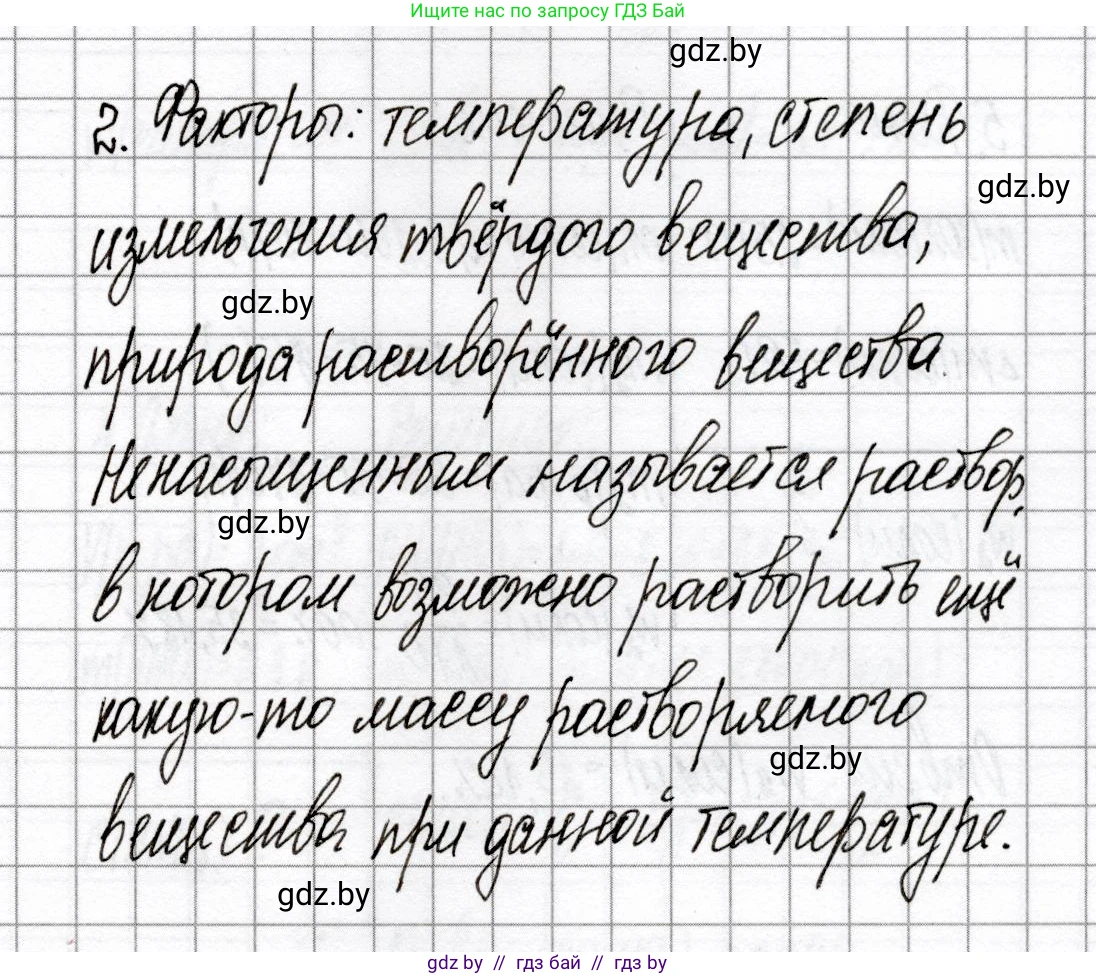 Ищите нас по запросу ГДЗ Бай
gdz.by
2. Факторы: температура, степень
gdz.by
измельчения твёрдого вещества,
gdz.by
природа растворённого вещества.
Ненасыщенным называется раствор,
gdz.by
в котором возможено растворить ещё
какую-то массу растворяемого
gdz.by
вещества при данной температуре.
gdz.by
gdz.by // гдз бай // гдз by